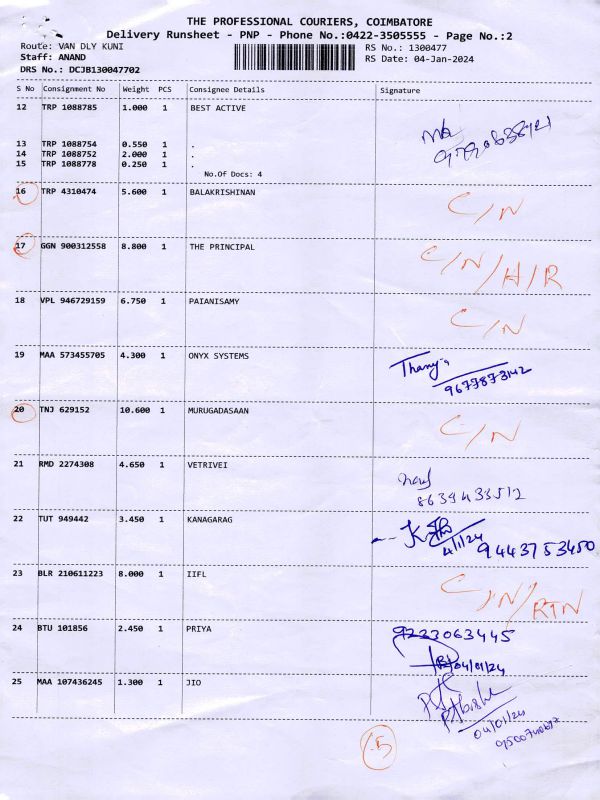 THE PROFESSIONAL COURIERS, COIMBATORE
Delivery Runsheet - PNP - Phone No.:0422-3505555 - Page No.:2
Route: VAN DLY KUNI RS No.: 1300477
Staff: ANAND RS Date: 04-Jan-2024
DRS No.: DCJB130047702
S No Consignment No Weight PCS Consignee Details Signature
12 TRP 1088785 1.000 1 BEST ACTIVE
13 TRP 1088754 0.550 1 .
14 TRP 1088752 2.000 1 .
15 TRP 1088778 0.250 1 .
No.Of Docs: 4
16 TRP 4310474 5.600 1 BALAKRISHINAN C/N
17 GGN 900312558 8.800 1 THE PRINCIPAL C/N/H/R
18 VPL 946729159 6.750 1 PAIANISAMY C/N
19 MAA 573455705 4.300 1 ONYX SYSTEMS
9677873142
20 TNJ 629152 10.600 1 MURUGADASAAN C/N
21 RMD 2274308 4.650 1 VETRIVEI
8639433512
22 TUT 949442 3.450 1 KANAGARAG
4/1/24 9443753450
23 BLR 210611223 8.000 1 IIFL C/N/RTN
24 BTU 101856 2.450 1 PRIYA 9233063445
04/01/24
25 MAA 107436245 1.300 1 JIO
04/01/24
5